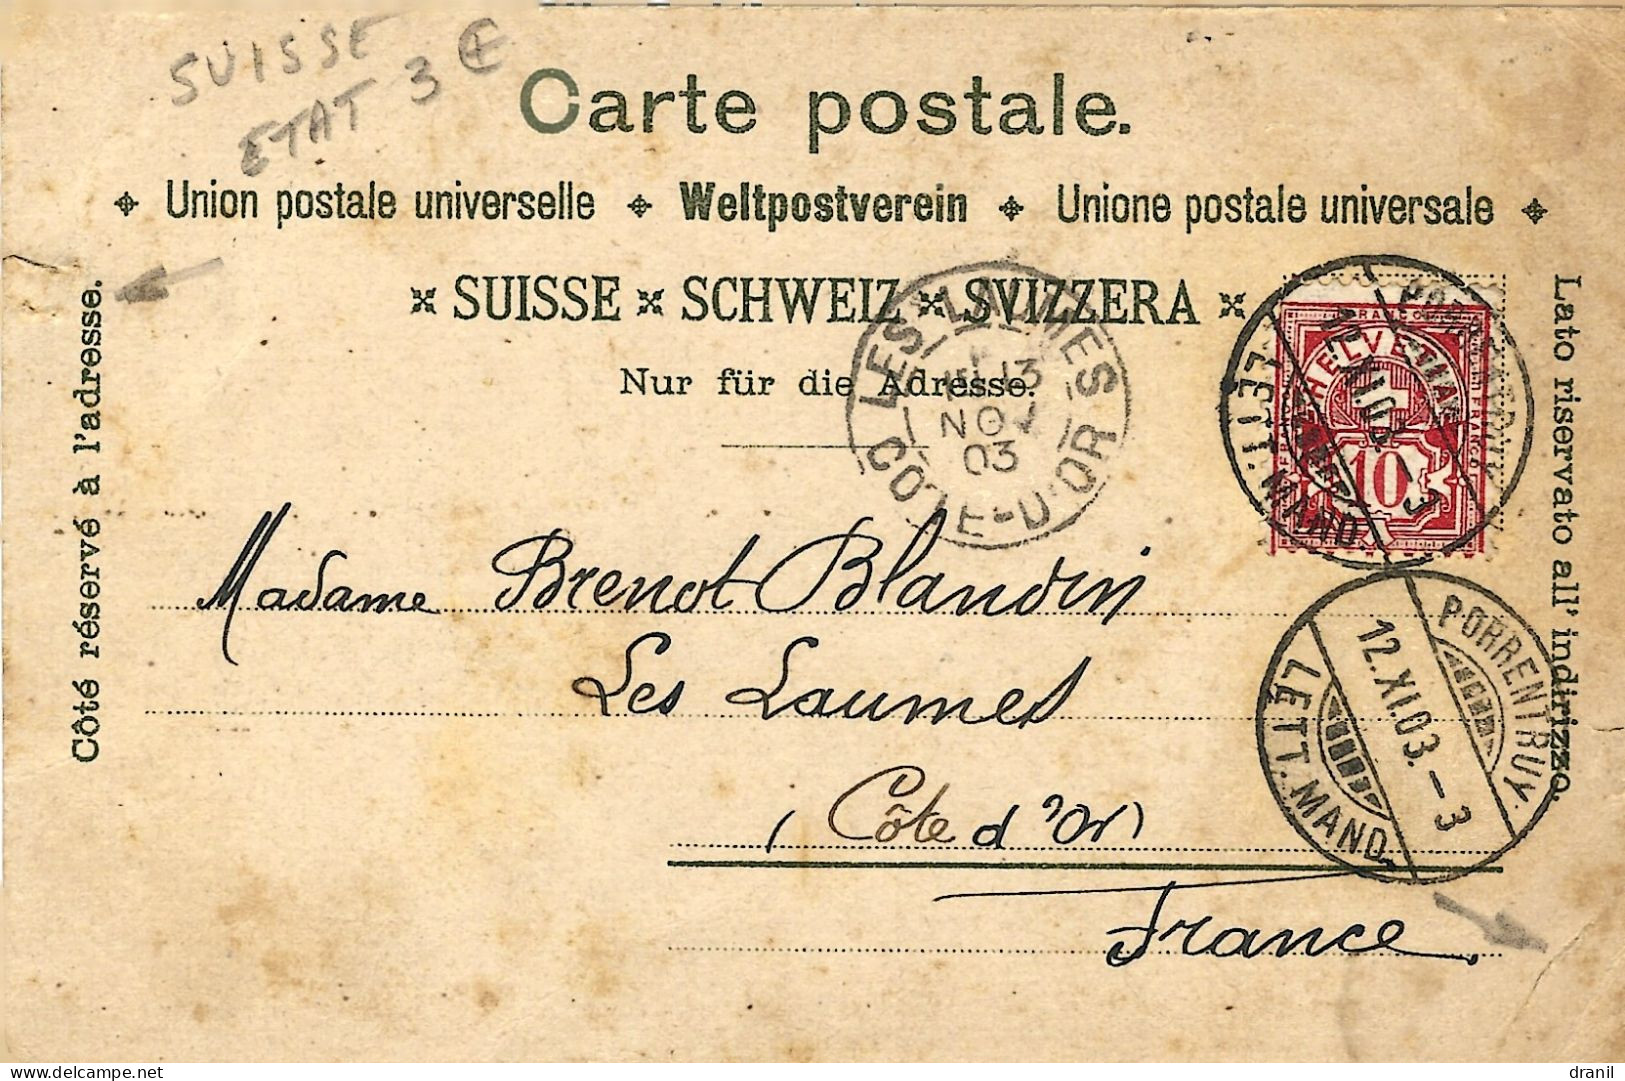 SUISSE
ETAT 3 €
Carte postale.
Union postale universelle Weltpostverein Unione postale universale
SUISSE SCHWEIZ SVIZZERA
Nur für die Adresse.
Côté réservé à l'adresse.
Lato riservato all' indirizzo.
LES LAUMES
13
NOV
03
CÔTE-D'OR
FRANCO
HELVETIA
FRANCO
10
PORRENTRUY
12.XI.03.-3
LETT. MAND.
Madame Brenot Blandin
Les Laumes
(Côte d'Or)
France.
PORRENTRUY.
12.XI.03.-3
LETT. MAND.
dranil